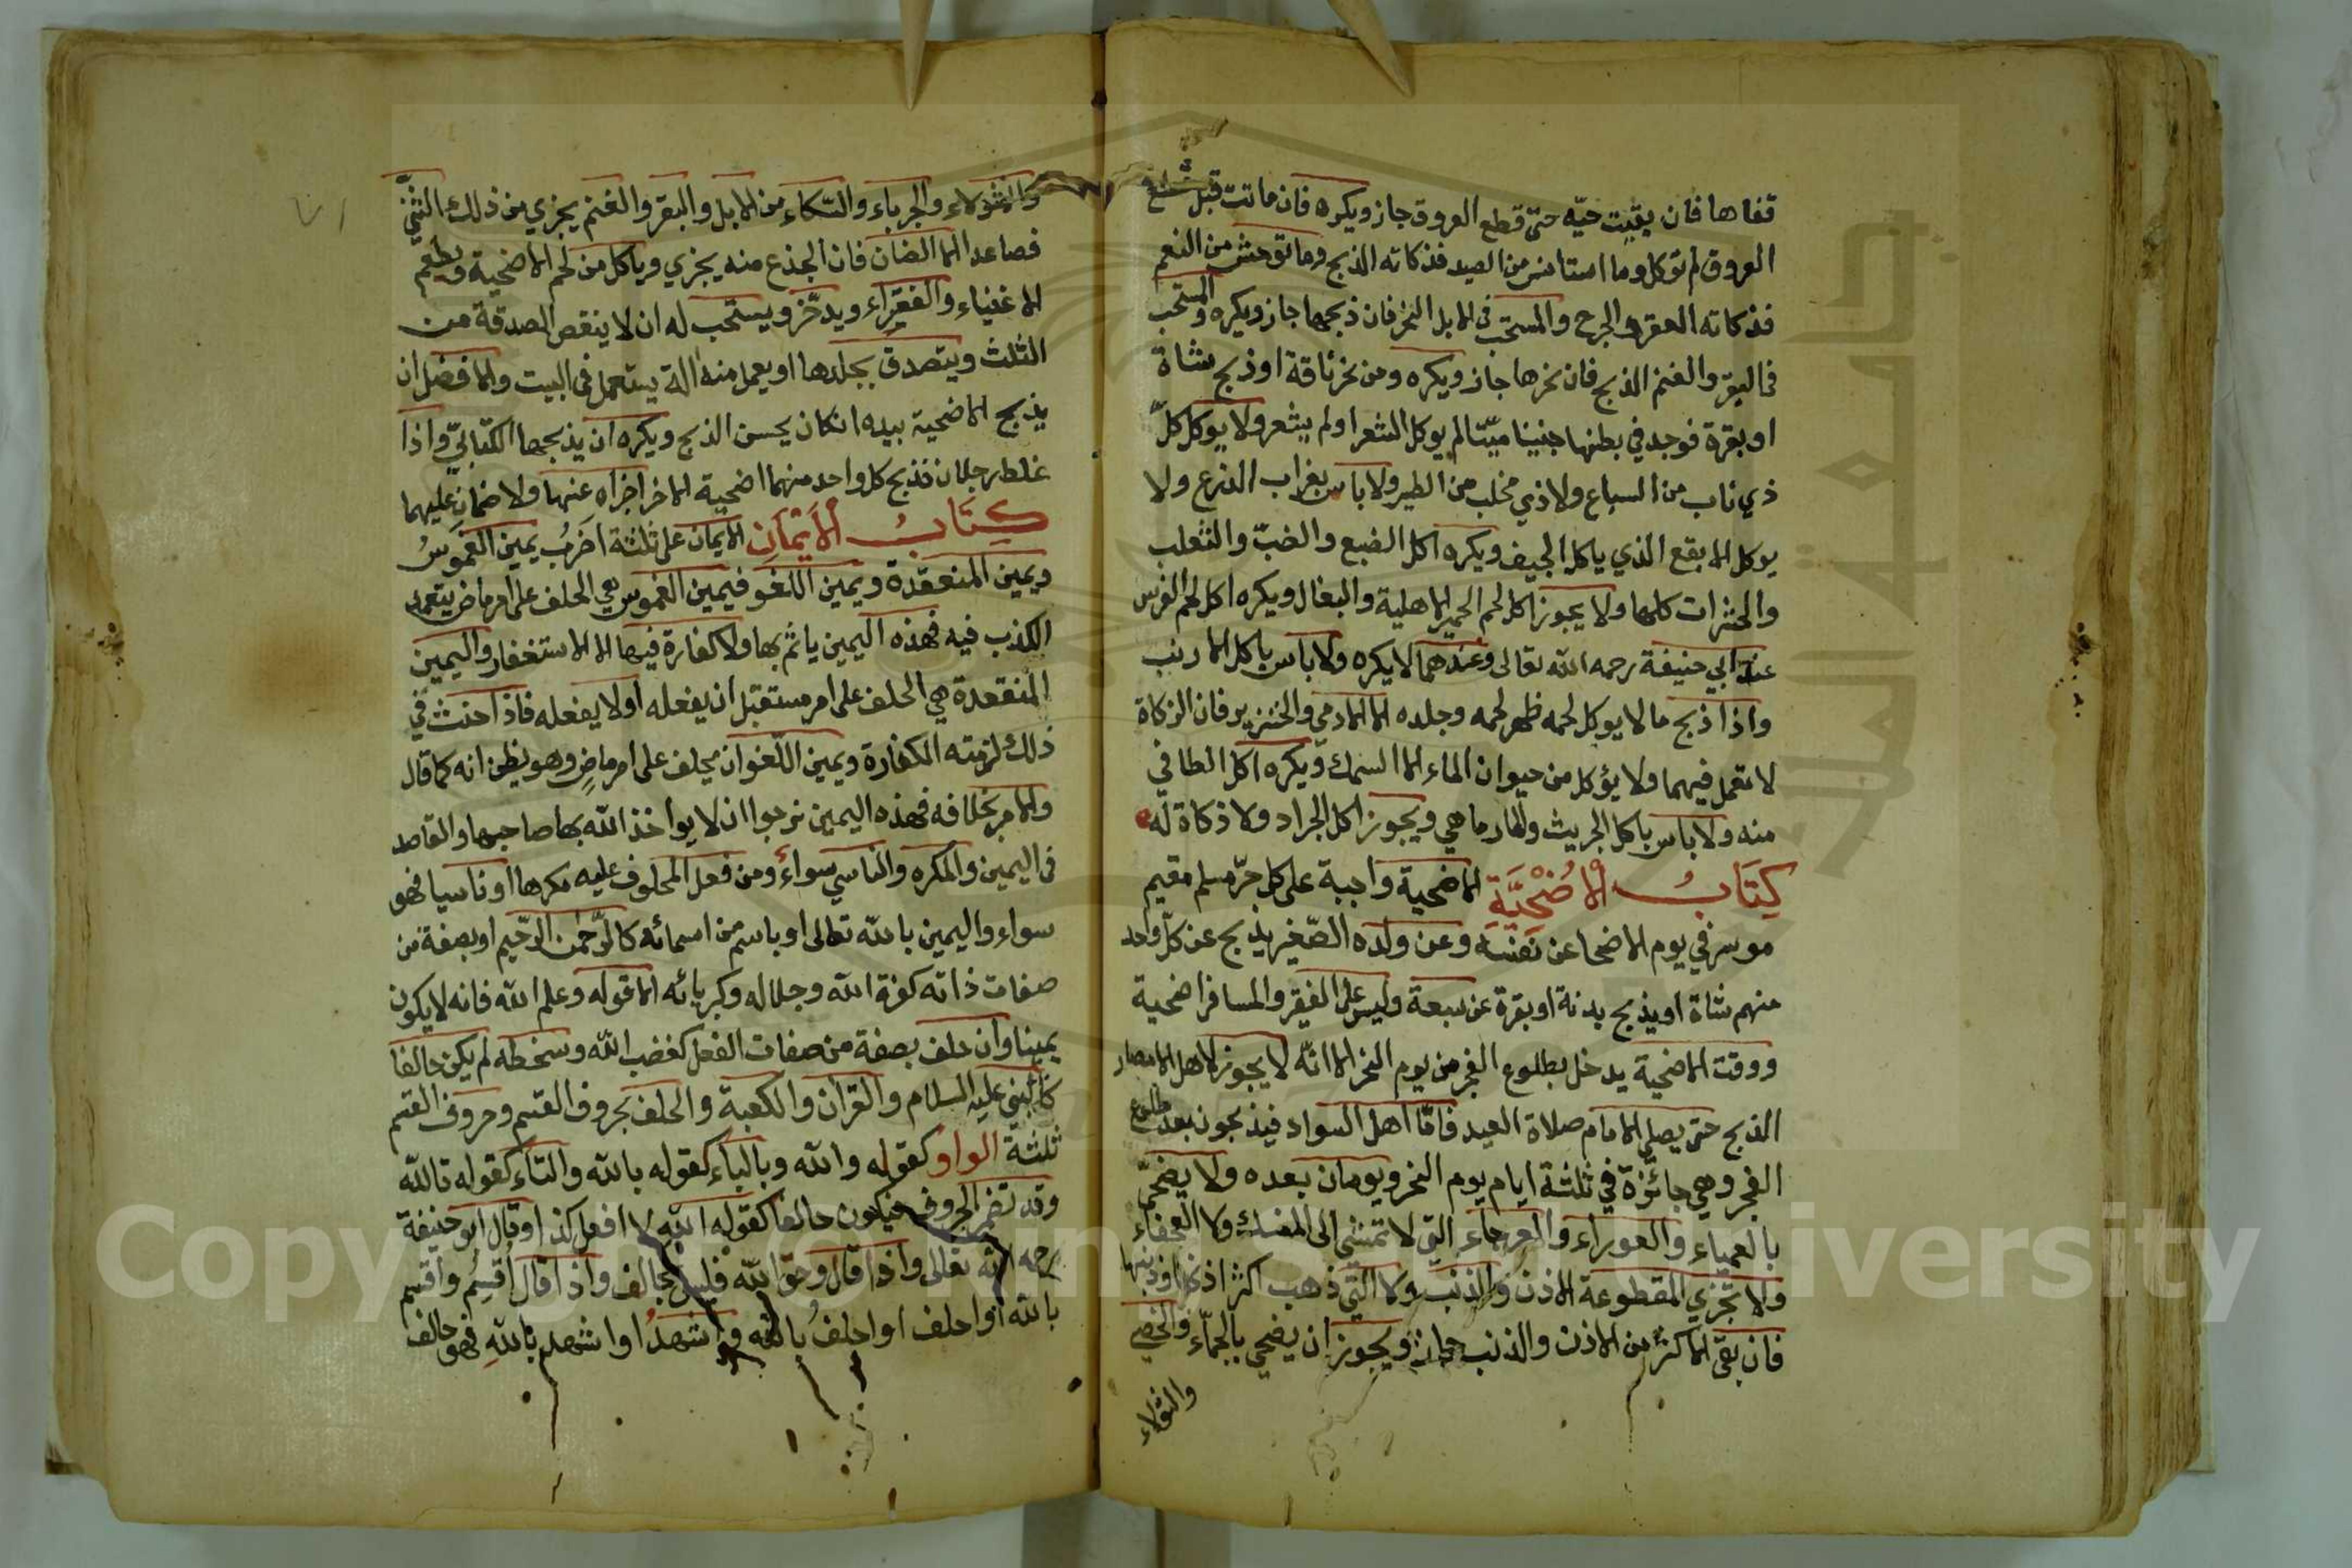 قفاها فان بقيت حيّه حتىّ قطع العروق جاز ويكره فان ماتت قبل قطع
العروق لم توكل وما استانس من الصيد فذكاته الذبح وما توحش من النعم
فذكاته العقر والجرح والمستحبّ فى الابل النحر فان ذبحها جاز ويكره والمستحب
فى البقر والغنم الذبح فان نحرها جاز ويكره ومن نحر ناقة او ذبح شاة
او بقرة فوجد في بطنها جنينا ميّتا لم يوكل اشعر او لم يشعر ولا يوكل كلّ
ذي ناب من السباع ولا ذي مخلب من الطير ولا باس بغراب الزرع ولا
يوكل الابقع الذي ياكل الجيف ويكره اكل الضبع والضبّ والثعلب
والحشرات كلها ولا يجوز اكل لحم الحمير الاهلية والبغال ويكره اكل لحم الفرس
عند ابي حنيفة رحمه الله تعالى وعندهما لا يكره ولا باس باكل الارنب
واذا ذبح ما لا يوكل لحمه طهر لحمه وجلده الا الادمي والخنزير فان الزكاة
لا تعمل فيهما ولا يؤكل من حيوان الماء الا السمك ويكره اكل الطافي
منه ولا باس باكل الجريث والمارماهي ويجوز اكل الجراد ولا ذكاة له
كِتَابُ ألاُضْحِيَّةِ الاضحية واجبة على كل حرّ مسلم مقيم
موسر في يوم الاضحا عن نفسه وعن ولده الصّغير يذبح عن كلّ واحد
منهم شاة او يذبح بدنة او بقرة عن سبعة وليس على الفقير والمسافر اضحية
ووقت الاضحية يدخل بطلوع الفجر من يوم النحر الا انّه لا يجوز لاهل الامصار
الذبح حتى يصلى الامام صلاة العيد فامّا اهل السواد فيذبحون بعد طلوع
الفجر وهي جائزة في ثلثة ايام يوم النحر ويومان بعده ولا يضحّى
بالعمياء والعوراء والعرجاء التي لا تمشي الى المنسك ولا العجفاء
ولا تجزي المقطوعة الاذن والذنب ولا التي ذهب اكثر اذنها او ذنبها
فان بقى الاكثر من الاذن والذنب جاز ويجوز ان يضحي بالجمّاء والخصي
والثولاء
والثولاء والجرباء والسّكاء من الابل والبقر والغنم يجزي من ذلك الثنيّ
فصاعدا الا الضان فان الجذع منه يجزي وياكل من لحم الاضحية ويطعم
الاغنياء والفقراء ويدخّر ويستحب له ان لا ينقص الصدقة من
الثلث ويتصدق بجلدها او يعمل منه الة يستعمل فى البيت والافضل ان
يذبح الاضحية بيده ان كان يحسن الذبح ويكره ان يذبحها الكتابيّ واذا
غلط رجلان فذبح كل واحد منهما اضحية الاخر اجزاه عنها ولا ضمان عليهما
كِتَابُ ألاَيْمَانِ الايمان على ثلثة اضربُ يمين الغموسُ
ويمين المنعقدة ويمين اللغو فيمين الغموس هي الحلف على امر ماض يتعمد
الكذب فيه فهذه اليمين ياثم بها ولا كفارة فيها الا الاستغفار واليمين
المنقعدة هي الحلف على امر مستقبل ان يفعله اولا يفعله فاذا حنث في
ذلك لزمته الكفارة ويمين اللّغو ان يحلف على امر ماضٍ وهو يظن انه كما قال
والامر بخلافه فهذه اليمين نرجوا ان لا يواخذ الله بها صاحبها والقاصد
فى اليمين والمكره والناسي سواء ومن فعل المحلوف عليه مكرها او ناسيا فهو
سواء واليمين بالله تعالى او باسم من اسمائه كالرّحمن الرّحيم او بصفة من
صفات ذاته كعزة الله وجلاله وكبريائه الا قوله وعلم الله فانه لا يكون
يمينا وان حلف بصفة من صفات الفعل كغضب الله وسخطه لم يكن حالفا
كالنبي عليه السلام والقران والكعبة والحلف بحروف القسم وحروف القسم
ثلثة الواو كقوله والله وبالباء كقوله بالله والتاء كقوله تالله
وقد تضمر الحروف فيكون حالفا كقوله الله لا افعل كذا وقال ابو حنيفة
رحمه الله تعالى واذا قال وحق الله فليس بحالف واذا قال اُقسِمُ واقسم
بالله او احلف او احلفُ بالله او اشهدُ او اشهد بالله فهو حالف
Copyright © King Saud University
جامعة الملك سعود